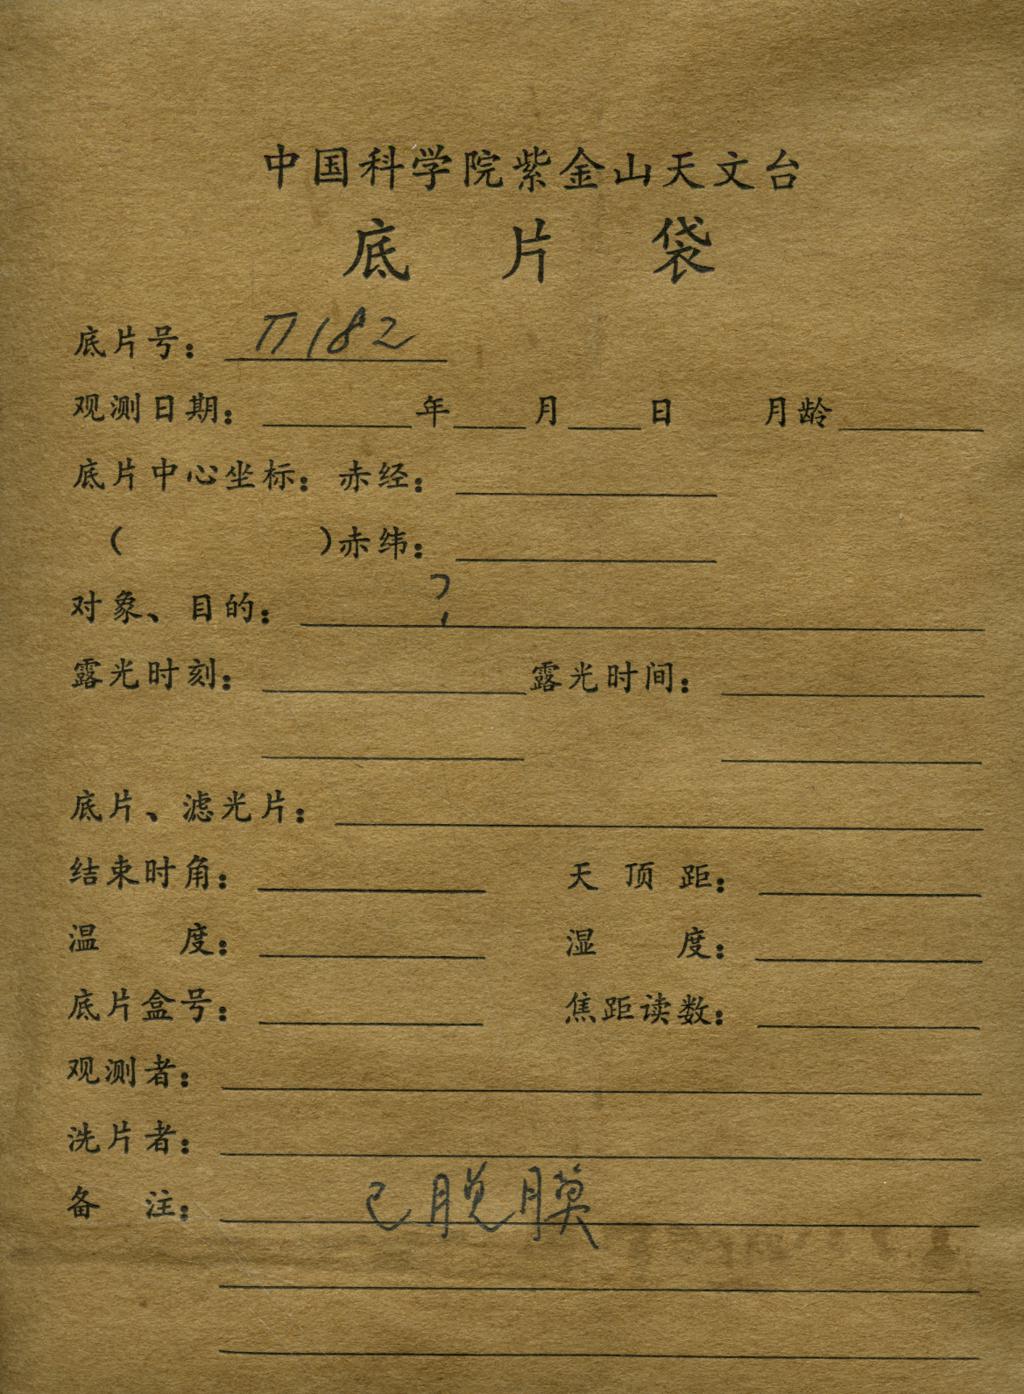 中国科学院紫金山天文台
底片袋
底片号：П182
观测日期：年月日 月龄
底片中心坐标：赤经：
（ ）赤纬：
对象、目的：?
露光时刻： 露光时间：
底片、滤光片：
结束时角： 天顶距：
温度： 湿度：
底片盒号： 焦距读数：
观测者：
洗片者：
备注：已脱膜